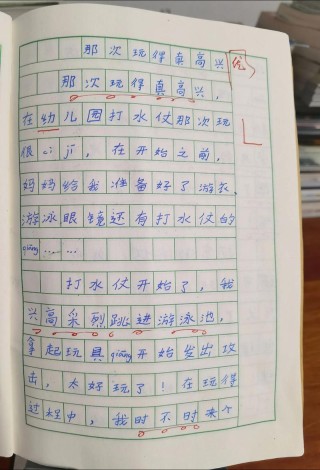 那次玩得真高兴
那次玩得真高兴，
在幼儿园打水仗那次玩
很cì jī，在开始之前，
妈妈给我准备好了游衣、
游泳眼镜还有打水仗的
qiāng……
打水仗开始了，我
兴高采烈跳进游泳池，
拿起玩具qiāng开始发出攻
击，太好玩了！在玩得
过程中，我时不时来个